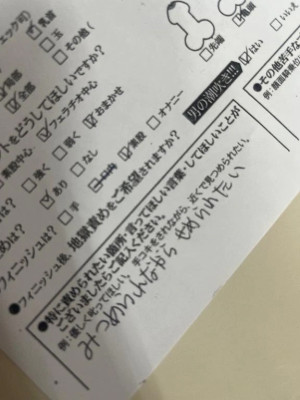 ェック可)
☑乳首
☐玉
☐その他(
☑全部
ントをどうしてほしいですか?
☑フェラチオ中心
☑おまかせ
☐強く
☐弱く
☐なし
☑あり
☐手
☑素股
☐オナニー
フィニッシュは?
●フィニッシュ後、地獄責めをご希望されますか?
男の潮吹き!!!
☑はい
☐いいえ
☐先端
●その他苦手な
例:顔面騎乗位
●特に責められたい箇所・言ってほしい言葉・してほしいことが
ございましたらご記入ください。
例:優しく叱ってほしい。手コキをされながら、近くで見つめられたい。
みつめられながら せめられたい